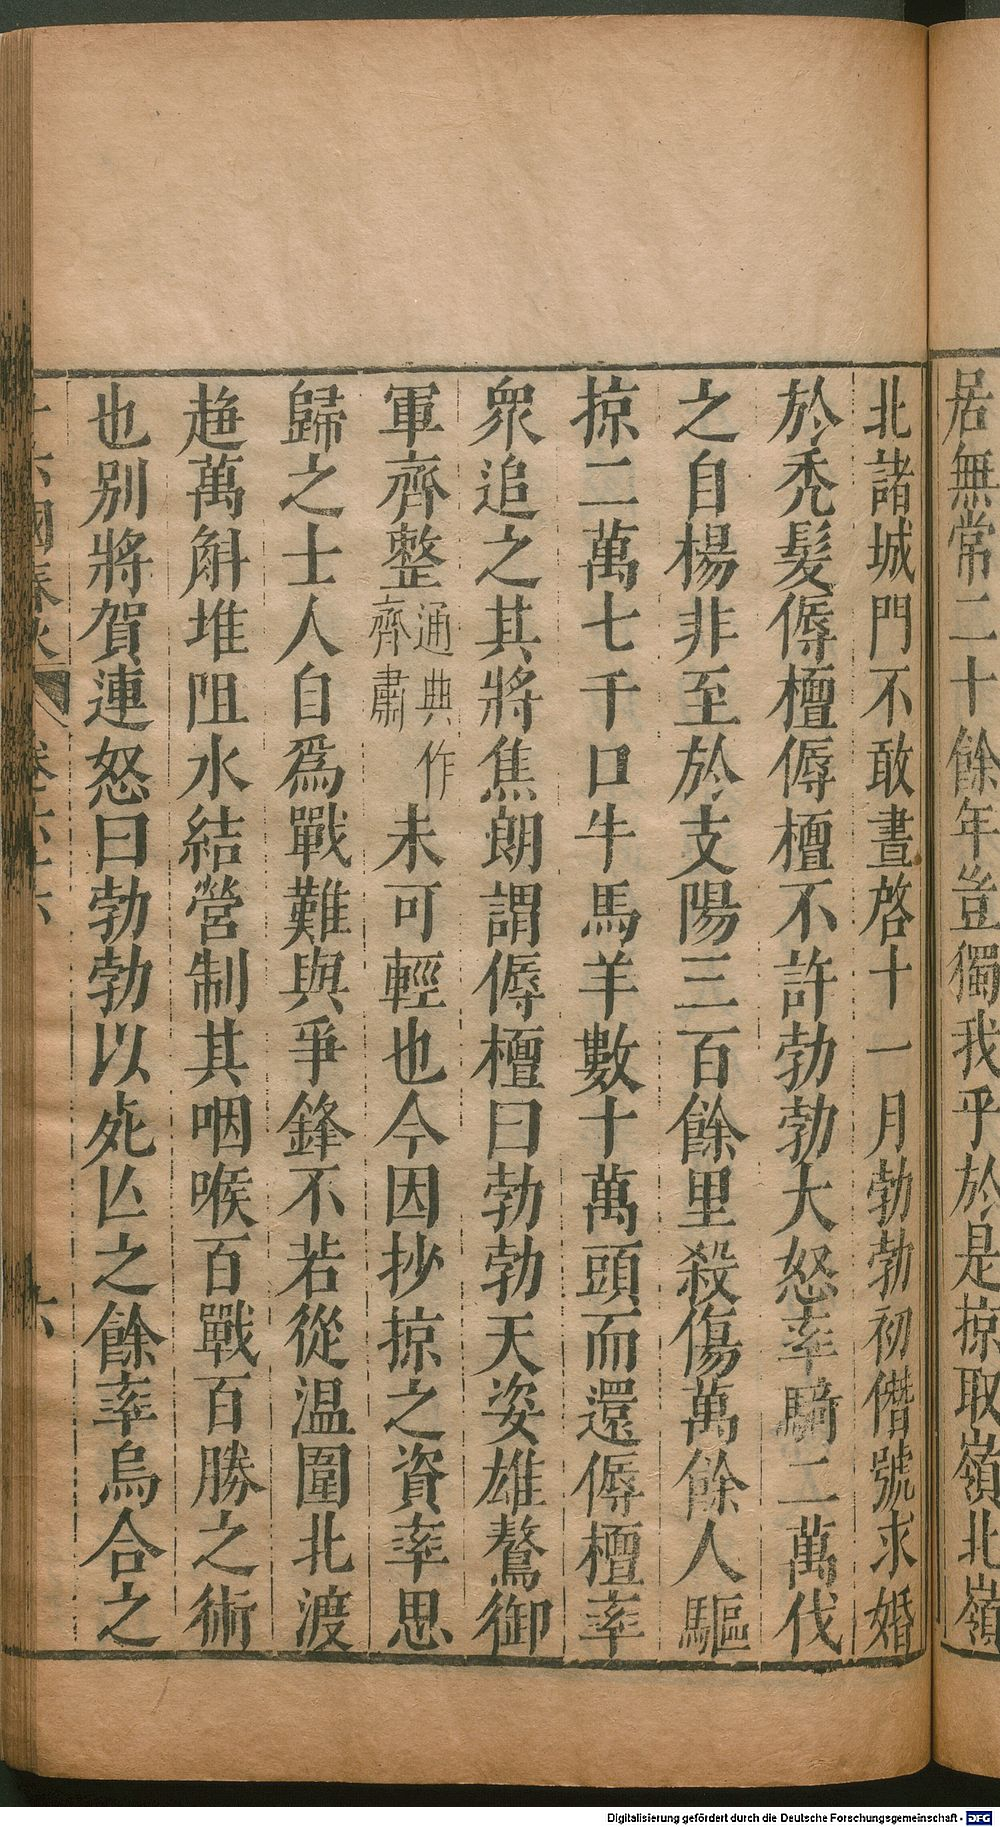 居無常二十餘年豈獨我乎於是掠取嶺北嶺
北諸城門不敢晝啓十一月勃勃初僭號求婚
於禿髮傉檀傉檀不許勃勃大怒率騎二萬伐
之自楊非至於支陽三百餘里殺傷萬餘人驅
掠二萬七千口牛馬羊數十萬頭而還傉檀率
衆追之其將焦朗謂傉檀曰勃勃天姿雄驁御
軍齊整通典作齊肅未可輕也今因抄掠之資率思
歸之士人自爲戰難與爭鋒不若從温圍北渡
趨萬斛堆阻水結營制其咽喉百戰百勝之術
也别將賀連怒曰勃勃以死亾之餘率烏合之
十六國春秋 卷六十六 六
Digitalisierung gefördert durch die Deutsche Forschungsgemeinschaft - DFG